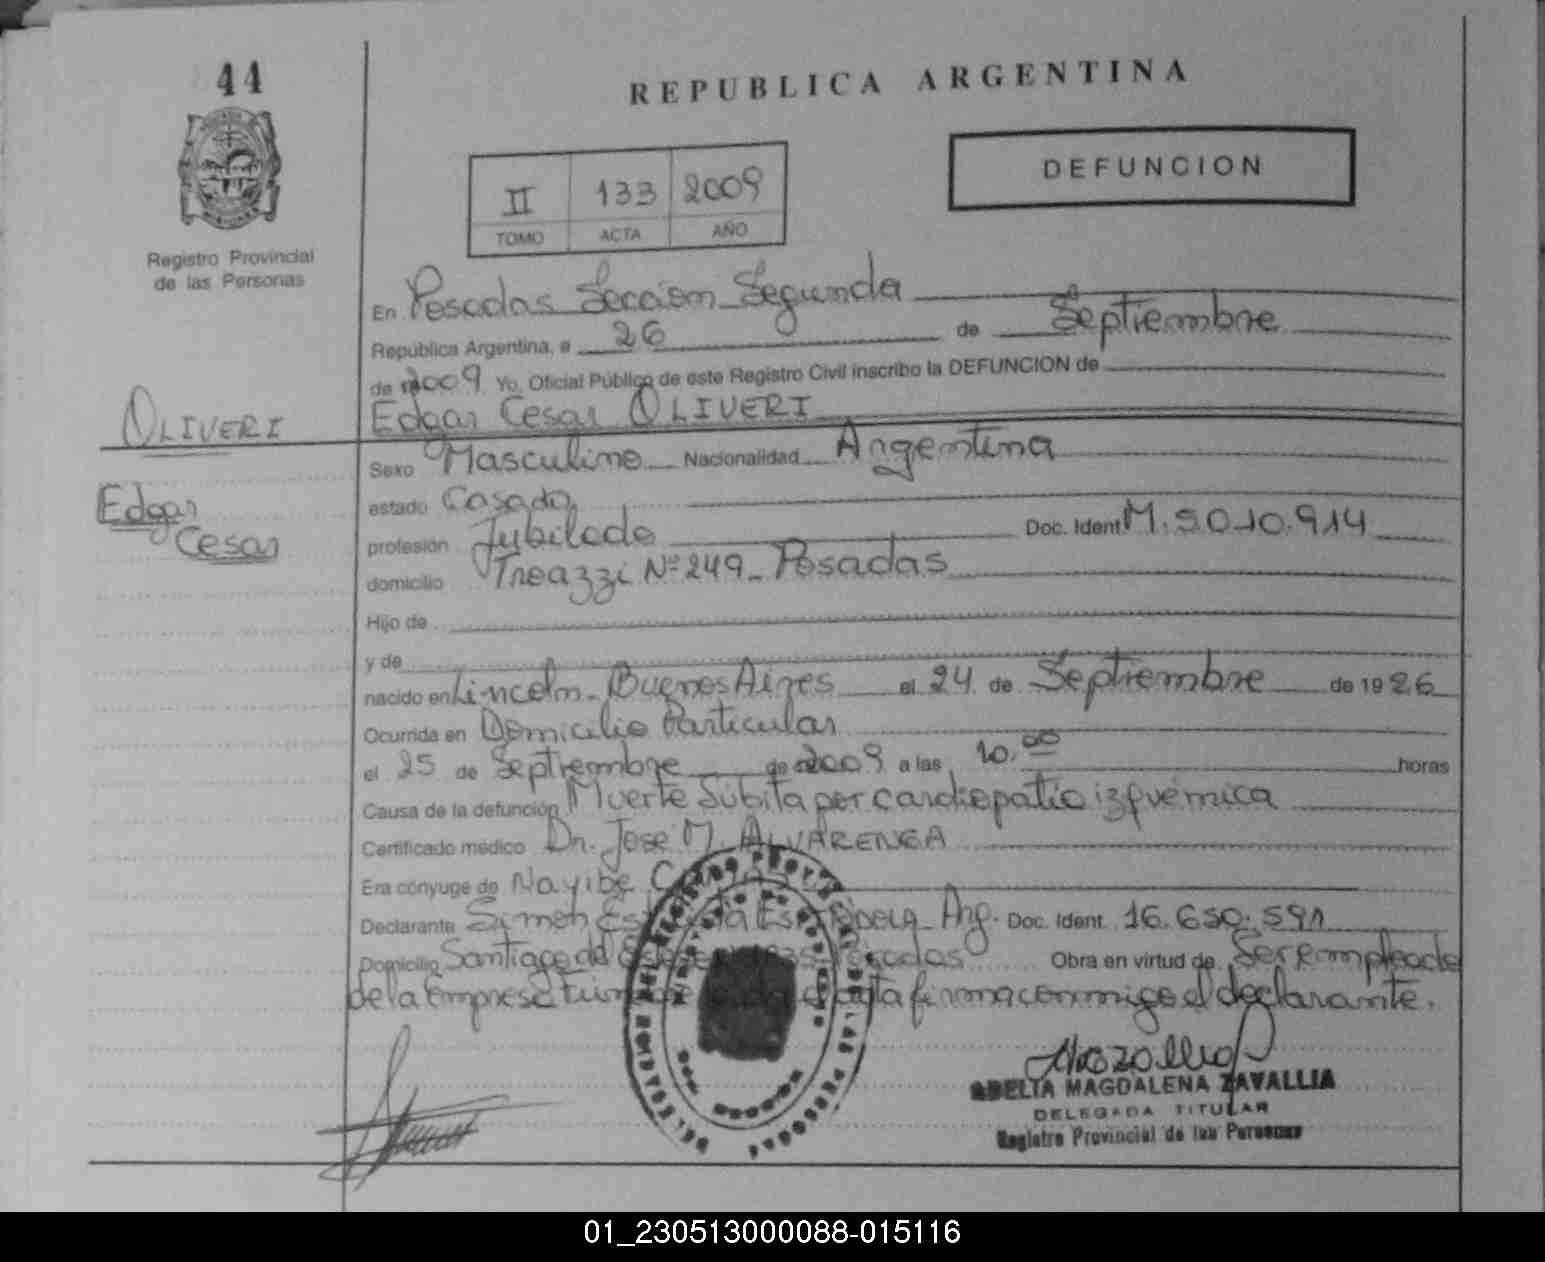 44
REPUBLICA ARGENTINA
II 133 2009
TOMO ACTA AÑO
DEFUNCION
Registro Provincial
de las Personas
En Posadas Seccion Segunda
República Argentina, a 26 de Septiembre
de 2009 Yo, Oficial Público de este Registro Civil inscribo la DEFUNCION de
Edgar Cesar OLIVERI
OLIVERI
Edgar
Cesar
Sexo Masculino Nacionalidad Argentina
estado Casado
profesión Jubilado Doc. Ident M. 5.010.914
domicilio Nº 249 - Posadas
Hijo de
y de
nacido en Lincoln - Buenos Aires el 24 de Septiembre de 1926
Ocurrida en Domicilio Particular
el 25 de Septiembre de 2009 a las 10.00 horas
Causa de la defunción Muerte Súbita por cardiopatia izquémica
Certificado médico Dn. Jose M. ALVARENGA
Era cónyuge de Nayibe
Declarante Simon Arg. Doc. Ident. 16.650.591
Domicilio Santiago del Posadas Obra en virtud de Ser empleado
de la Empresa firma conmigo el declarante.
ADELIA MAGDALENA ZAVALLIA
DELEGADA TITULAR
Registro Provincial de las Personas
01_230513000088-015116